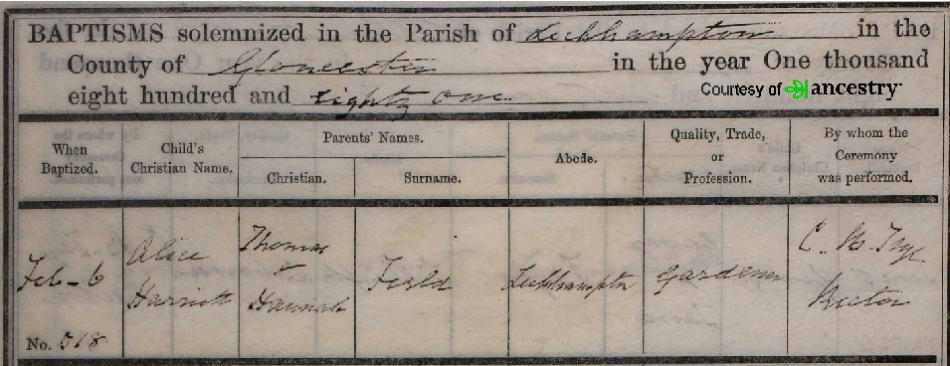 BAPTISMS solemnized in the Parish of Leckhampton in the
County of Gloucester in the year One thousand
eight hundred and eighty one
Courtesy of ancestry
When Baptized.
Child's Christian Name.
Parents' Names.
Christian.
Surname.
Abode.
Quality, Trade, or Profession.
By whom the Ceremony was performed.
Feb - 6
No. 518
Alice
Harriett
Thomas
+
Hannah
Field
Leckhampton
Gardener
C. B. Trye
Rector